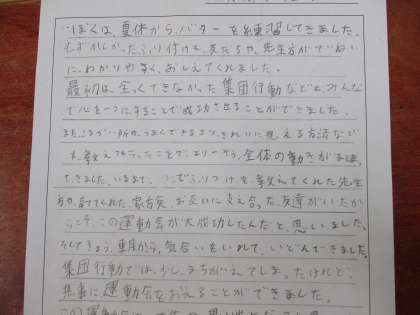 ぼくは、夏休みから、バターを練習してきました。
むずかしかったふり付けも、友だちや、先生方がていねい
に、わかりやすく、おしえてくれました。
最初は、全くできなかった集団行動なども、みんな
で心を一つにすることで成功させることができました。
また、こまかい所や、うまくできるコツ、きれいに見える方法など
も、教え合ったことで、より一そう、全体の動きが
できました。いままで、ふりつけを、教えてくれた先生
方や、家族、お互いに支え合った友達がいたか
らこそ、この運動会が大成功したんだと、思いました。
そしてきょう、車月から、気合いをいれて、いどんできました。
集団行動では、少し、まちがえてしまったけれど、
無事に運動会をおえることができました。
この運動会